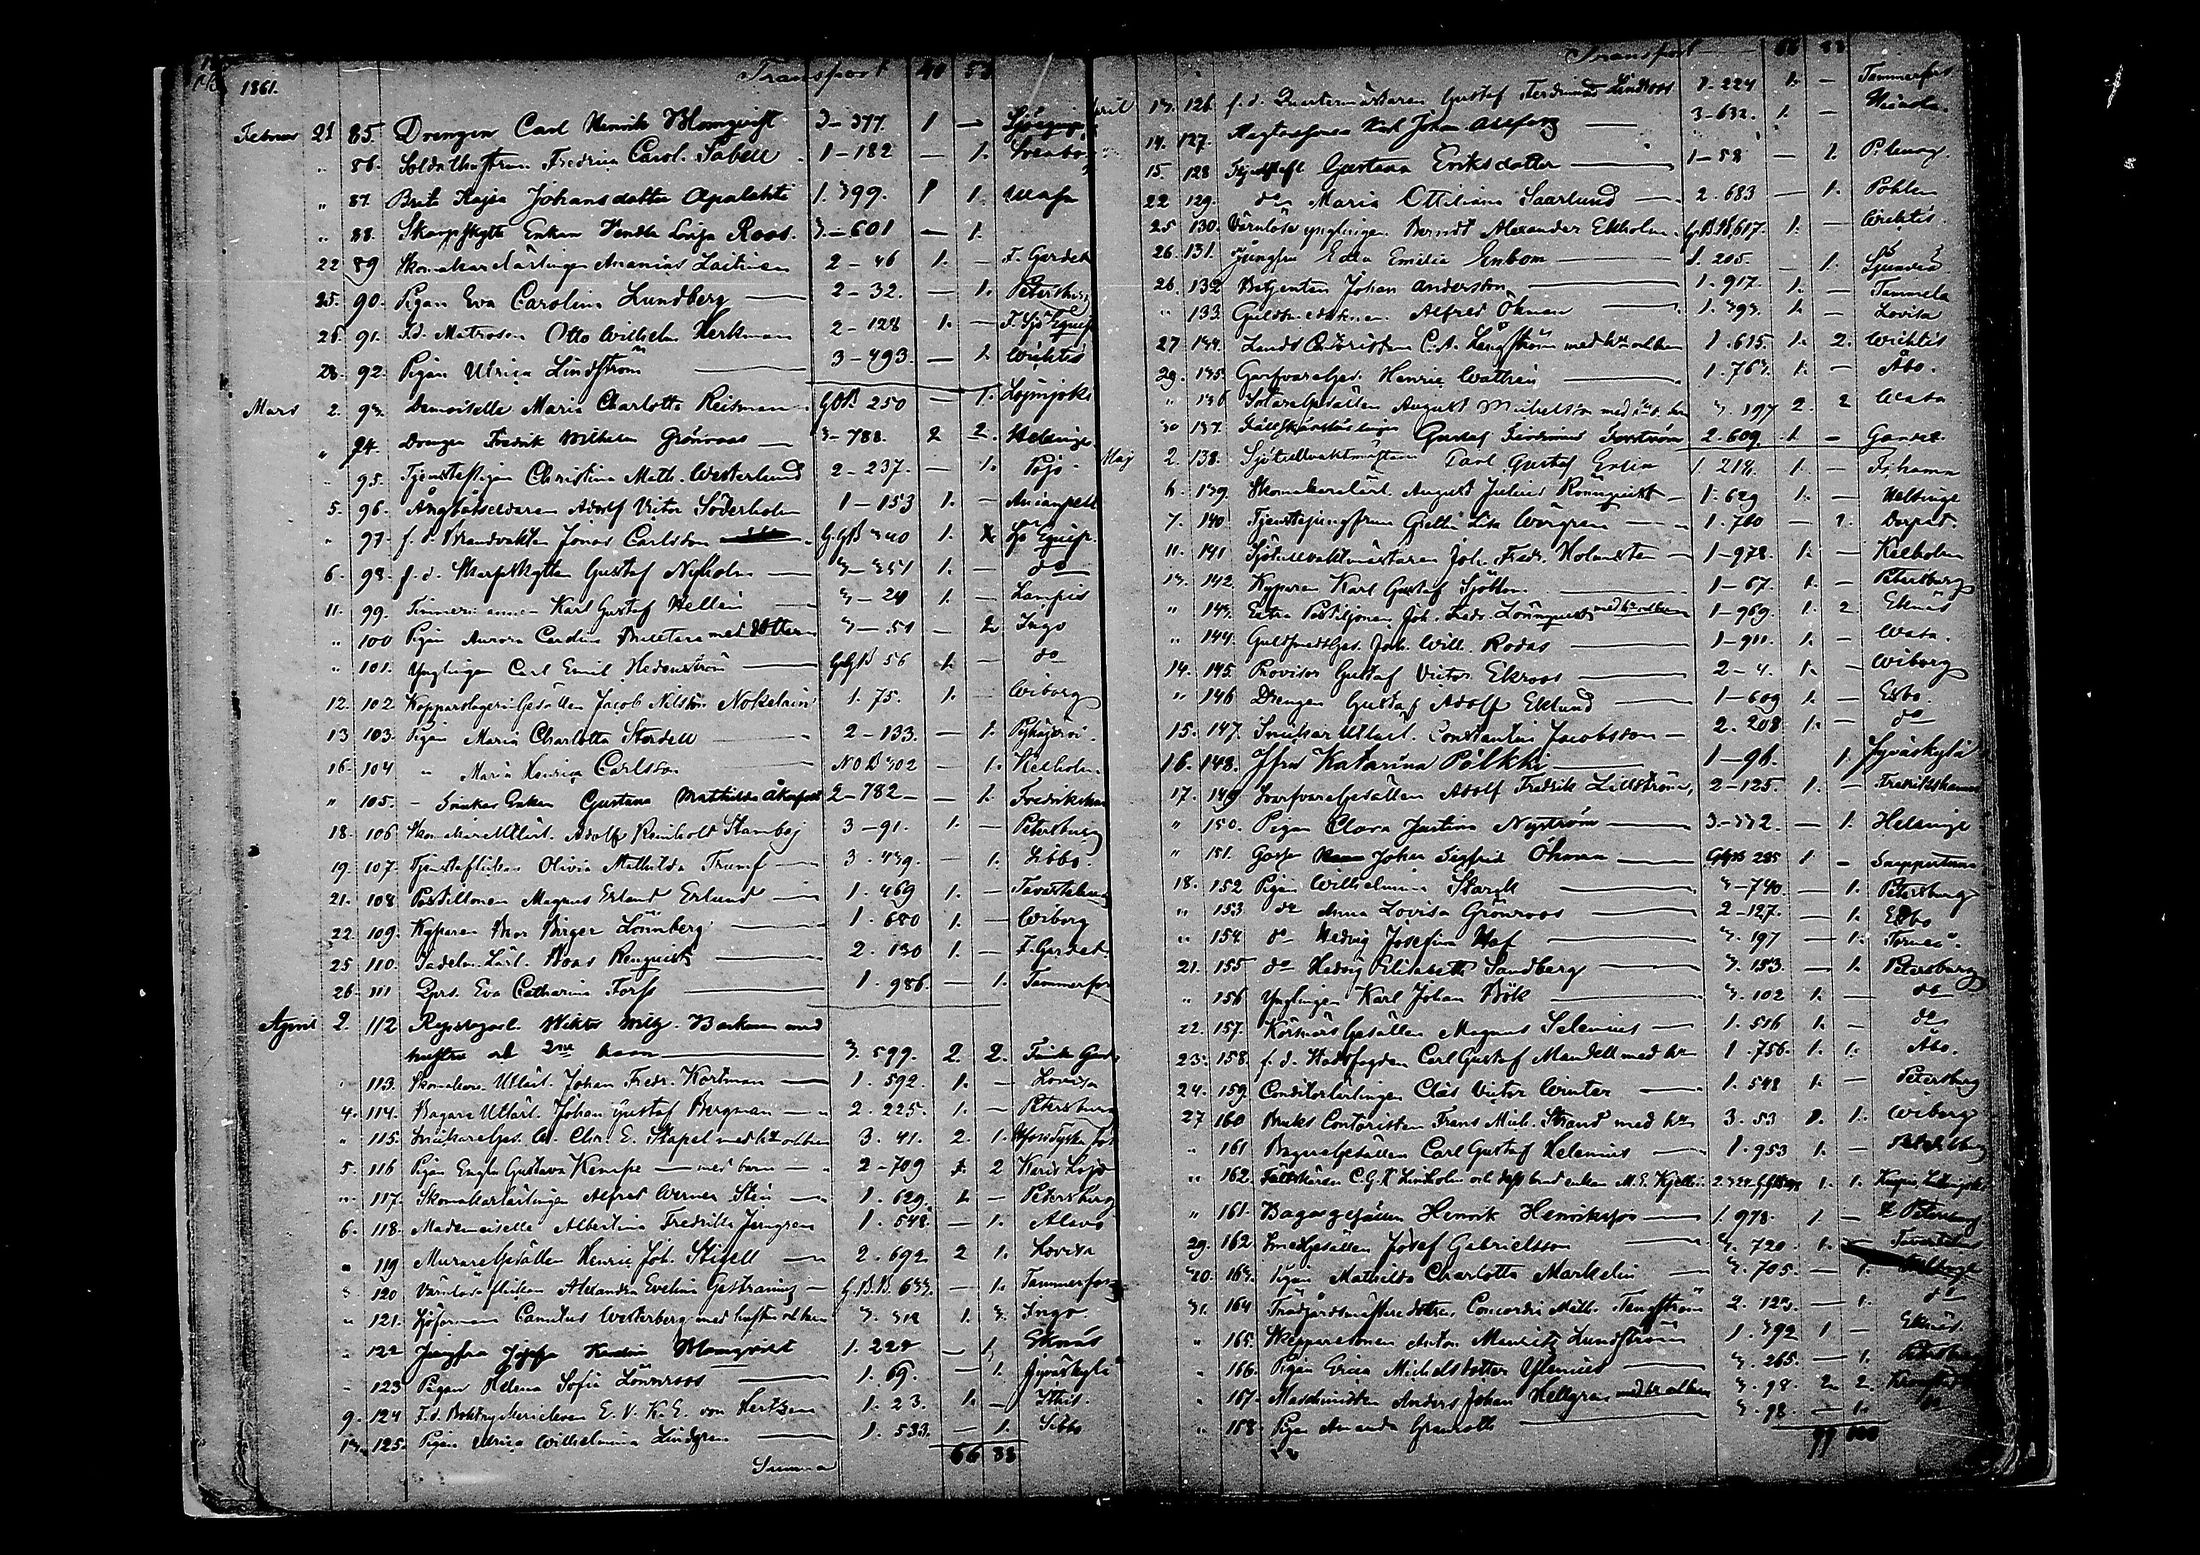 1861. Transport 40 53
Februar 21 85. Drengen Carl Henrik Blomqvist 3-377. 1 —
" 86. Soldathustrun Fredrica Carol. Sabell 1-182 — 1. Sveaborg
" 87. Brita Kajsa Johansdotter Apalahti 1. 399. 1 1.
" 88. Skarpskytte Enkan Hendla Lovisa Roos. 3-601 — 1.
22 89 Skomakarelärlingen Ananias Laitinen 2-46 1. — F. Gardet
25. 90. Pigan Eva Carolina Lundberg — 2-32. — 1. Petersburg
25. 91. F.d. Matrosen Otto Wilhelm Herkman 2-128 1. — F. Sjö Equip
28. 92. Pigan Ulrica Lindström — 3-493. — 1. Wichtis
Mars 2. 93. Demoiselle Maria Charlotta Reisman G.B.B. 250 — 1. Loimjoki
" 94. Drengen Fredrik Wilhelm Grönroos — 3-788. 2 2. Helsinge
" 95. Tjenstefligan Christina Math. Westerlund 2-237. — 1. Pojo
5. 96. Ångbåtseldaren Adolf Victor Söderholm 1-153 1. —
" 97. f.d. Brandvakten Jonas Carlsson G.G.B 340 1. Sjö Equip.
6. 98. f.d. Skarpskytten Gustaf Nyholm — 3-351 1. — do
11. 99. Timmermannen Karl Gustaf Hellén — 3-24 1. — Lampis
" 100 Pigan Aurora Carolina med dotter 3-51 — 2 Ingo
" 101. Ynglingen Carl Emil Hedenström — G.G.B 56 1. — do
12. 102 Kopparslageri Gesällen Jacob Nilsson Nokelain 1. 75. 1. — Wiborg
13 103. Pigan Maria Charlotta Stordell — 2-133. — 1. Pyhäjärvi
16. 104 " Maria Henrica Carlsson — N.O.B 302 — 1. Kexholm
" 105. Enkan Gustava Mathilda 2-782 — — 1. Fredriksham
18. 106 Skomakare Utlärl. Adolf Reinhold Stamböj 3-91. 1. — Petersburg
19. 107. Tjensteflickan Olivia Mathilda Trumf — 3. 439. — 1. Sibbo.
21. 108 Postillonen Magnus Erland Erlund — 1. 469 1. — Tavastehus
22. 109. Kyparen Birger Lönnberg — 1. 680 1. — Wiborg
25 110. Sadelm. Lärl. Renquist — 2. 130 1. — F. Gardet
26. 111 Eva Catharina Forss — 1. 986. — 1. Tammerfors
April 2. 112 Wiktor Backman med
hustru och 2ne barn — 3. 599. 2. 2. Finska Gard.
" 113. Skomakare Utlärl. Johan Fredr. Kortman — 1. 592. 1. — Lovisa
4. 114. Bagare Utlärl. Johan Gustaf Bergman — 2. 225. 1. — Petersburg
" 115. Snickareges. Chr. E. Stapel med hu och barn 3. 41. 2. 1.
5. 116 Pigan Engla Gustava Kempe — med barn — 2-709 1. 2 Karis Lojo
" 117. Skomakarelärlingen Alfred Werner Sten — 1. 629. 1. — Petersburg
6. 118. Mademoiselle Albertina Fredrika Jerngren 1. 548. — 1. Alavo
" 119 Murare Gesällen Henric Joh. Stigell — 2. 692 2 1. Lovisa
" 120 Värnlösa flickan Alexandra Evelina — G.B.B. 633. — 1. Tammerfors
" 121. Canutus Westerberg med hustru och barn 3. 318 1. 3. Ingo.
" 122 Jungfru Blomqvist 1. 228 — 1. Ekenäs
" 123 Pigan Helena Sofia Lönnroos — 1. 69. — 1. Jyväskylä
9. 124 F.d. E. V. K. E. von Hertzen 1. 23. 1. — Ithis.
13. 125. Pigan Ulrica Wilhelmina Lindgren — 1. 533. — 1. Sibbo
Summa 66 88
Transport — 66 88
April 13. 126. f.d. Quartermästaren Gustaf Ferdinand Lindroos 1-224 1. — Tammerfors
14. 127. Karl Johan 3-632. 1. —
15. 128 Gustava Eriksdotter — 1-58 — 1.
22 129. do Maria Ottiliana Saarlund — 2. 683 — 1.
25 130. Värnlöse ynglingen Berndt Alexander Ekholm G.B.B. 617. 1. — Wichtis
26. 131. Jungfru Edla Emilia Enbom — 1. 205. — 1. Sjundeå
26. 132 Betjenten Johan Andersson — 1. 917. 1. — Tammela
" 133. Alfred Öhman — 1. 393. 1. — Lovisa
27 134. Lands Contoristen C.A. Långström med hu och barn 1. 615 1. 2. Wichtis
29. 135. Garfvare Ges. Henric Wathén — 1. 763. 1. — Åbo.
" 136 August Michelsson med 3. 197 2. 2 Wasa
30 137. Gustaf Ferdinand Forström 2. 609. 1 —
Maj 2. 138. Sjötullvaktmästaren Carl Gustaf Grén 1. 218. 1. —
6. 139. Skomakarelärl. August Julius Rönnquist — 1. 629 1. — Helsinge
7. 140 Tjenstejungfrun Lisa — 1. 760 — 1. Dorpat.
11. 141 Sjötullvaktmästaren Joh. Fredr. Holmsten — 1-978. 1. — Kexholm
13. 142. Kyparen Karl Gustaf Sjöblom — 1-67. 1. — Petersburg
" 143. Extra Postiljonen Joh. Fredr. Lönnquist med hu och barn 1-969. 1. 2 Ekenäs
" 144. Guldsmedsges. Joh. Wilh. Rodas — 1-911. 1. — Wasa.
14. 145. Provisor Gustaf Victor Ekroos — 2-4. 1. — Wiborg
" 146 Drengen Gustaf Adolf Eklund — 1-609 1. — Esbo
15. 147. Snickar Utlärl. Constantin Jacobsson — 2. 208 1. — do
16. 148. Jfru Katarina Pölkki — 1-96. 1. Jyväskylä
17. 149 Svarfvare Gesällen Adolf Fredrik Lillström 2-125. 1. — Fredrikshamn
" 150. Pigan Clara Justina Nyström — 3-332. — 1. Helsinge
" 151. Gosse Johan Sigfrid Öhman — G.G.B 285 1 — Snappertuna
18. 152 Pigan Wilhelmina Stargh — 3-740. — 1. Petersburg
" 153 do Anna Lovisa Grönroos — 2-127. — 1. Esbo
" 154 do Hedvig Josefina Haf — 3. 197 — 1. Torneå.
21. 155 do Hedvig Elisabeth Sandberg — 3. 153. — 1. Petersburg
" 156 Ynglingen Karl Johan Bök — 3. 102 1. — do
22. 157. Körsnärs Gesällen Magnus Selenius — 1. 516 1. — do
23. 158. f.d. Stadsfogden Carl Gustaf Mandell med hu 1. 756. 1. 1. Åbo.
24. 159. Conditorlärlingen Claes Victor Winter — 1. 548 1. — Petersburg
27 160 Bruks Contoristen Frans Mich. Strand med hu 3. 53 1. 1. Wiborg
" 161 Bagare Gesällen Carl Gustaf Helenius — 1. 953 1. —
" 162. Fältskären C.G. Lindholm och enkan M.E. 1. 1.
" 161. Bagargesällen Henrik Henriksson — 1. 978. 1 — St Petersburg
29. 162 Smedgesällen Josef Gabrielsson — 3. 720. 1. — Tavastehus
30. 163. Pigan Mathilda Charlotta Markelin — 3. 705. — 1.
31. 164 Trädgårdsmästaredottren Concordia Math. Tengström 2. 123. — 1. do
" 165. Skepparesonen Anton Mauritz Lundström 1. 392 1 — Ekenäs
" 166. Pigan Greta Michelsdotter Ylenius — 3. 265. — 1. Petersburg
" 167. Maschinisten Anders Johan Hellgren med hu och barn 3. 98. 2. 2.
" 168 Pigan Amanda Granroth — 3. 98. — 1. do
99